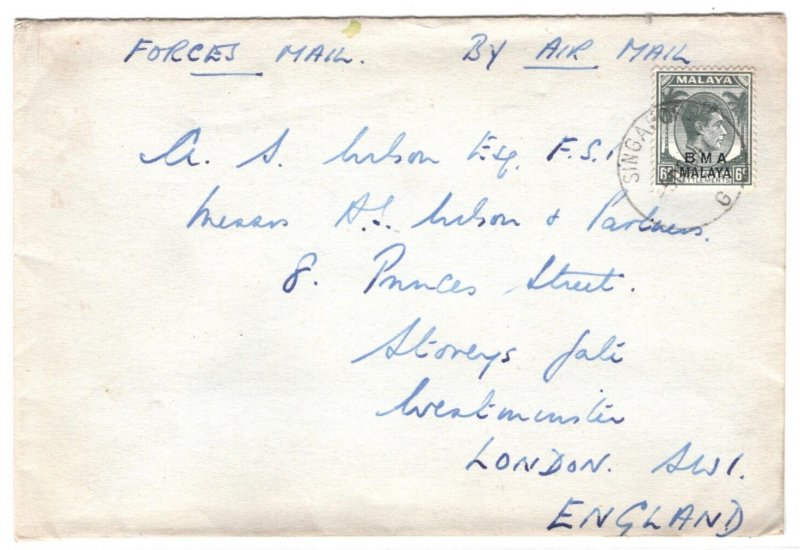 FORCES MAIL. BY AIR MAIL
MALAYA
SINGAPO
BMA
MALAYA
6c SETTLEMENTS 6c
G
A. S. Wilson Esq. F.S.I
Messrs A.S. Wilson & Partners.
8. Princes Street.
Storeys Gate
Westminster
LONDON. SW1.
ENGLAND